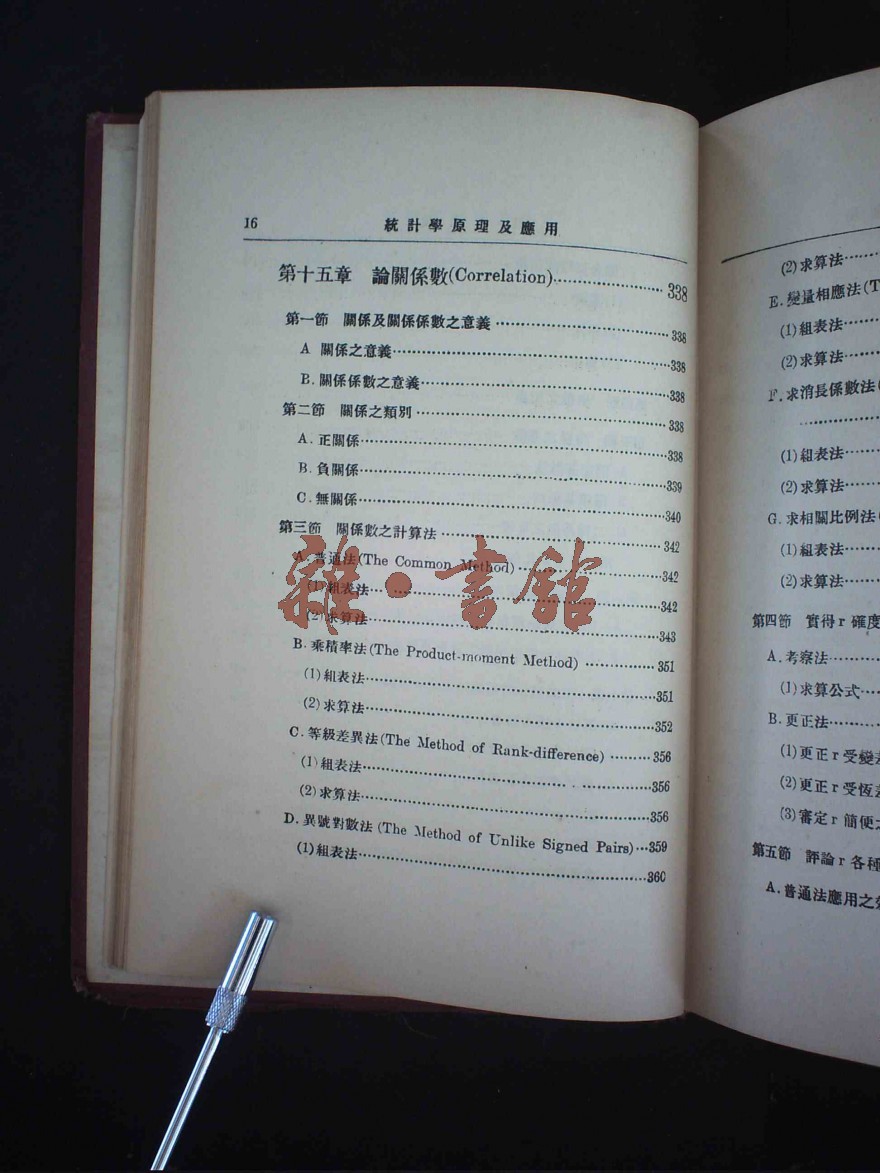 16 統計學原理及應用
第十五章 論關係數(Correlation)……………338
第一節 關係及關係係數之意義……………338
A 關係之意義……………338
B.關係係數之意義……………338
第二節 關係之類別……………338
A.正關係……………338
B.負關係……………339
C.無關係……………340
第三節 關係數之計算法……………342
A.普通法(The Common Method)……………342
(1)組表法……………342
(2)求算法……………343
B.乘積率法(The Product-moment Method)……………351
(1)組表法……………351
(2)求算法……………352
C.等級差異法(The Method of Rank-difference)………356
(1)組表法……………356
(2)求算法……………356
D.異號對數法(The Method of Unlike Signed Pairs)…359
(1)組表法……………360
雜·書館
(2)求算法……
E.變量相應法(T
(1)組表法……
(2)求算法……
F.求消長係數法(
……………
(1)組表法……
(2)求算法……
G.求相關比例法(
(1)組表法……
(2)求算法……
第四節 實得r確度
A.考察法……
(1)求算公式……
B.更正法……
(1)更正r受變
(2)更正r受恆
(3)審定r簡便
第五節 評論r各種
A.普通法應用之